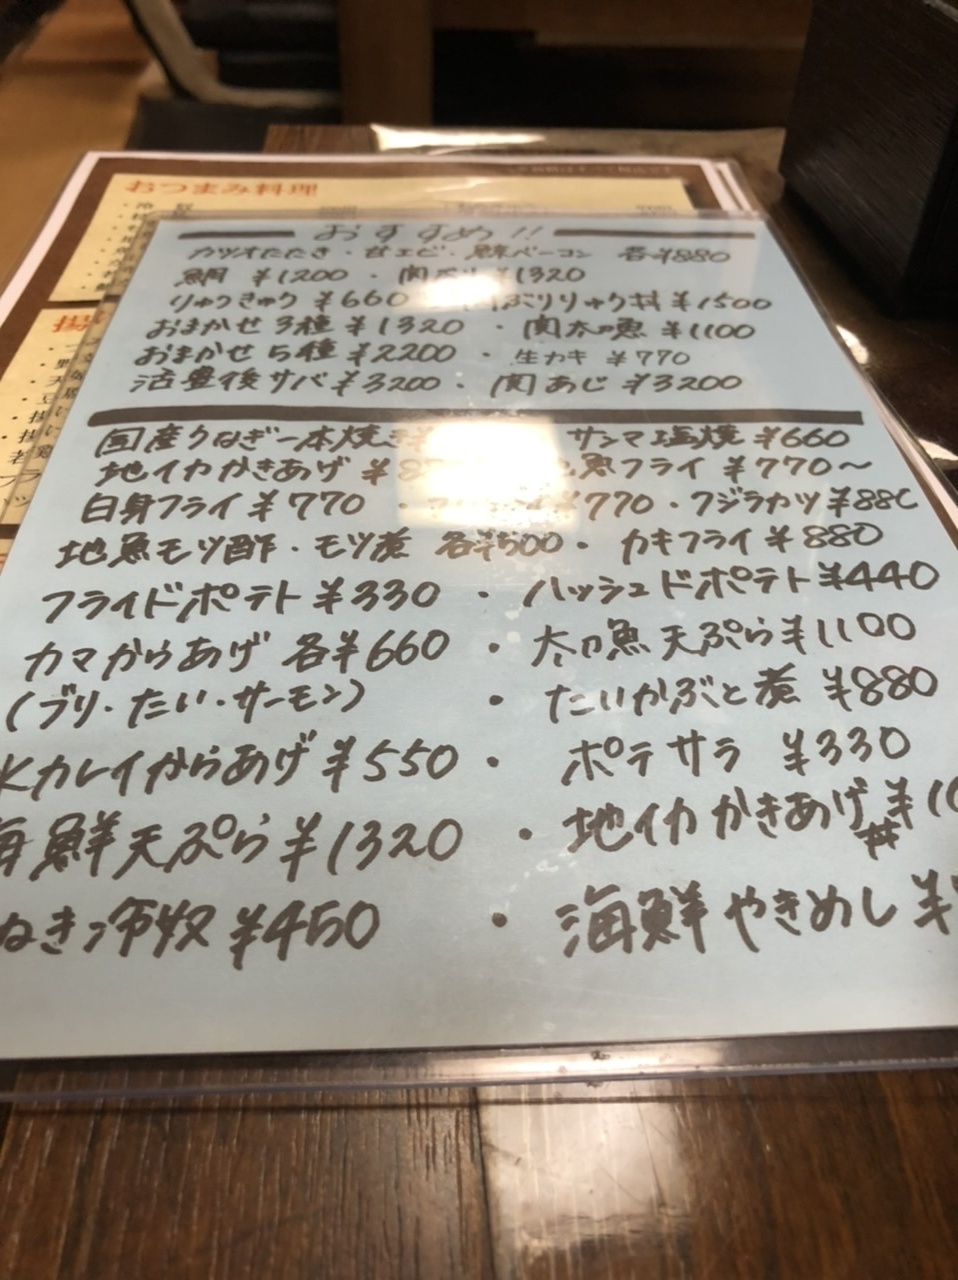 おつまみ料理
おすすめ!!
カツオたたき・甘エビ・鯨ベーコン 各¥880
鯛 ¥1200 ・ 関 ¥1320
りゅうきゅう ¥660 ぶりりゅう丼 ¥1500
おまかせ3種 ¥1320 ・ 関太刀魚 ¥1100
おまかせ5種 ¥2200 ・ 生カキ ¥770
活豊後サバ ¥3200 ・ 関あじ ¥3200
国産うなぎ一本焼き サンマ塩焼 ¥660
地イカかきあげ ¥8 魚フライ ¥770〜
白身フライ ¥770 ・ ¥770・クジラカツ ¥880
地魚モツ酢・モツ煮 各¥500・ カキフライ ¥880
フライドポテト ¥330 ・ ハッシュドポテト ¥440
カマからあげ 各¥660 ・ 太刀魚天ぷら ¥1100
(ブリ・たい・サーモン) ・ たいかぶと煮 ¥880
水カレイからあげ ¥550 ・ ポテサラ ¥330
海鮮天ぷら ¥1320 ・ 地イカかきあげ丼 ¥10
ねぎ冷奴 ¥450 ・ 海鮮やきめし ¥